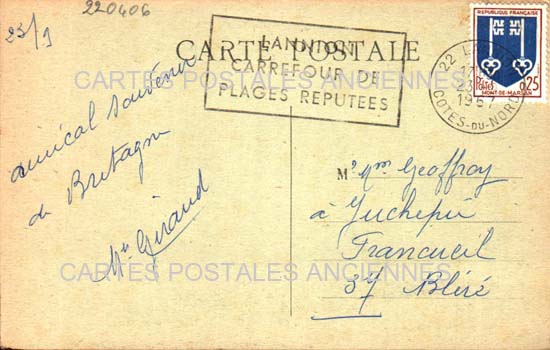 220406
23/9
CARTE POSTALE
LANNION
CARREFOUR DE
PLAGES REPUTEES
REPUBLIQUE FRANÇAISE
POSTES 0,25
MONT-DE-MARSAN
22
23
1967
COTES-DU-NORD
amical souvenir
de Bretagne
Mme Giraud
M
Mr Mme Geoffroy
à Juchepie
Francueil
37 Bléré
CARTES POSTALES ANCIENNES
CARTES POSTALES ANCIENNES